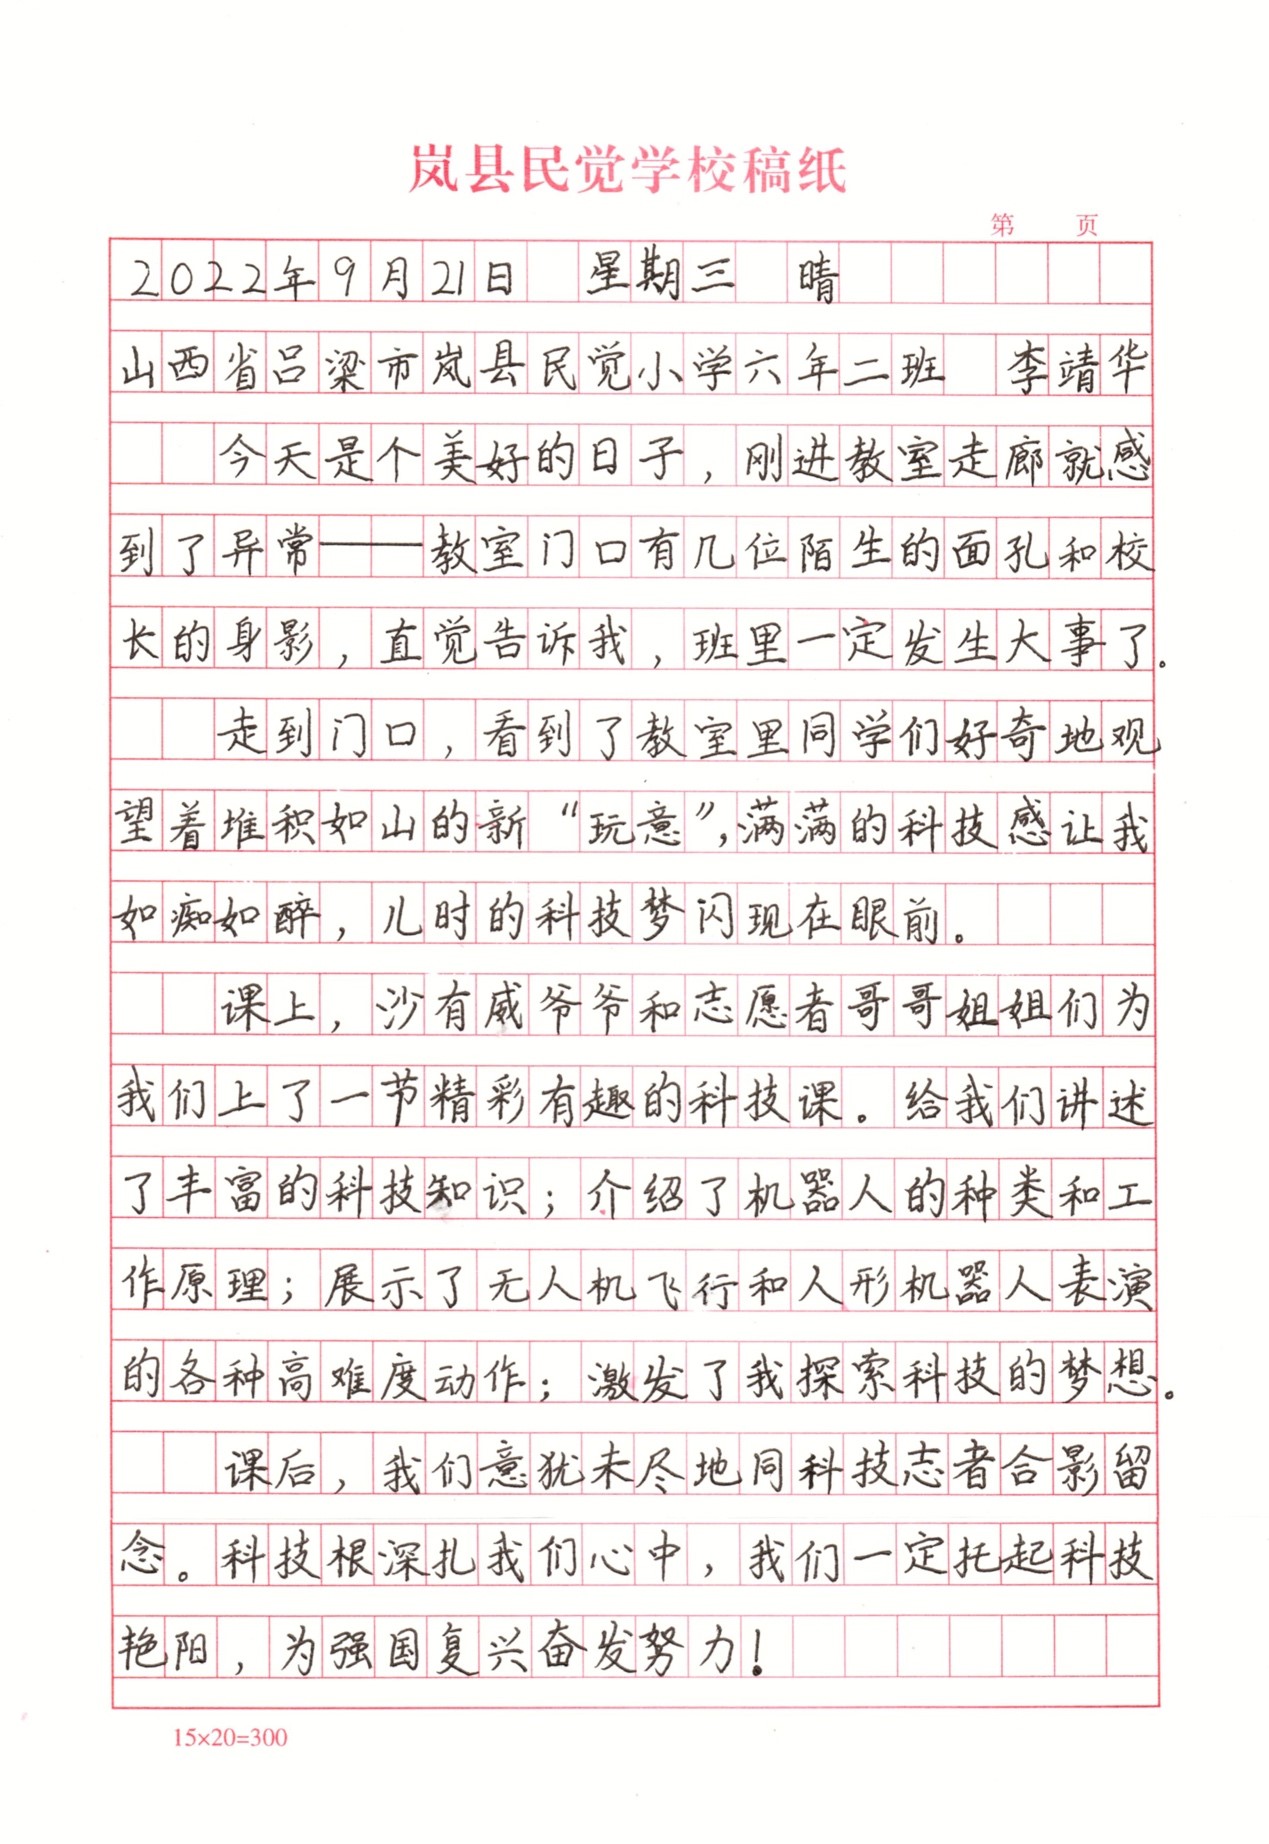 岚县民觉学校稿纸
第 页
2022年9月21日 星期三 晴
山西省吕梁市岚县民觉小学六年二班 李靖华
今天是个美好的日子，刚进教室走廊就感
到了异常——教室门口有几位陌生的面孔和校
长的身影，直觉告诉我，班里一定发生大事了。
走到门口，看到了教室里同学们好奇地观
望着堆积如山的新“玩意”，满满的科技感让我
如痴如醉，儿时的科技梦闪现在眼前。
课上，沙有威爷爷和志愿者哥哥姐姐们为
我们上了一节精彩有趣的科技课。给我们讲述
了丰富的科技知识；介绍了机器人的种类和工
作原理；展示了无人机飞行和人形机器人表演
的各种高难度动作；激发了我探索科技的梦想。
课后，我们意犹未尽地同科技志者合影留
念。科技根深扎我们心中，我们一定托起科技
艳阳，为强国复兴奋发努力！
15×20=300